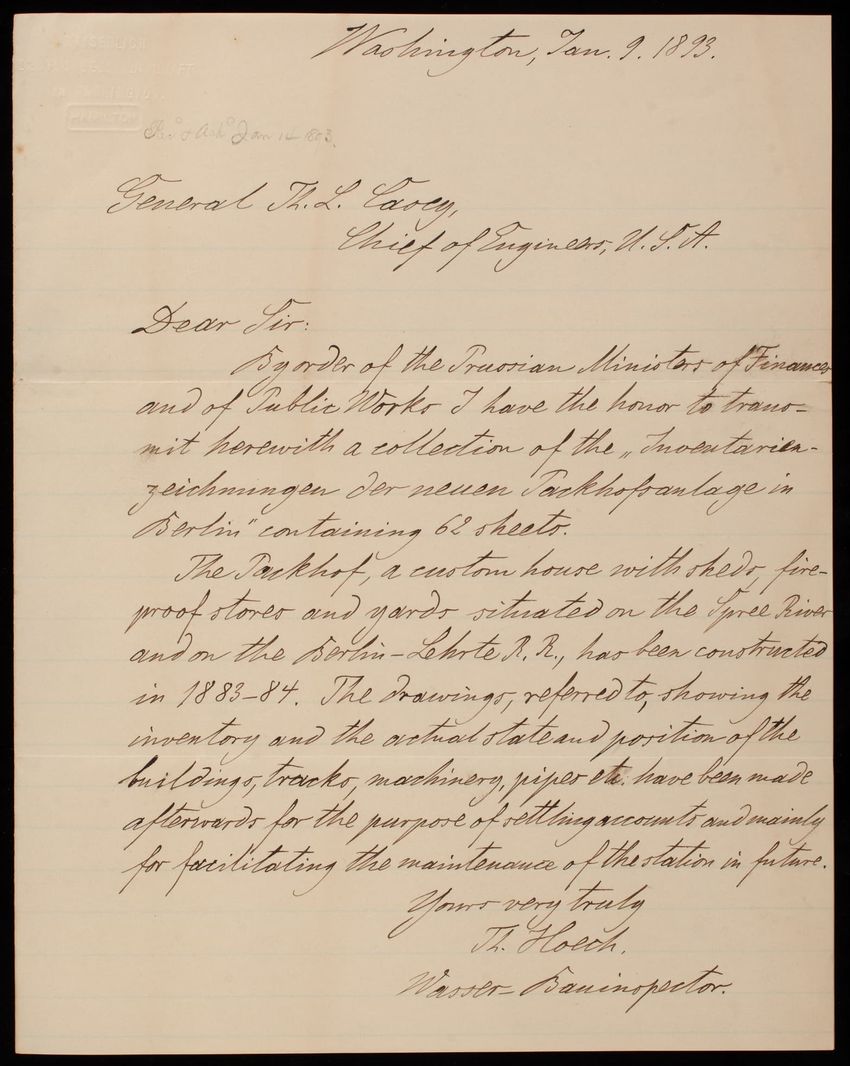 Washington, Jan. 9. 1893.
Rec'd & Ack'd Jan 14 1893.
General Th. L. Casey,
Chief of Engineers, U. S. A.
Dear Sir:
By order of the Prussian Ministers of Finances
and of Public Works I have the honor to trans-
mit herewith a collection of the „Inventarien-
zeichnungen der neuen Packhofsanlage in
Berlin" containing 62 sheets.
The Packhof, a custom house with sheds, fire-
proof stores and yards situated on the Spree River
and on the Berlin-Lehrte R. R., has been constructed
in 1883-84. The drawings, referred to, showing the
inventory and the actual state and position of the
buildings, tracks, machinery, pipes etc. have been made
afterwards for the purpose of settling accounts and mainly
for facilitating the maintenance of the station in future.
Yours very truly
Th. Hoech.
Wasser-Bauinspector.